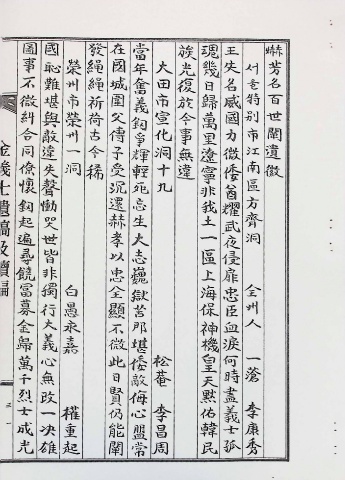 赫芳名百世闡遺徽
서울特別市江南區方背洞 全州人 一滄 李康秀
王失名威國力微倭酋耀武夜侵扉忠臣血淚何時盡義士孤
魂幾日歸萬里遼寧非我土一區上海保神機皇天默佑韓民
族光復於今事無違
大田市宣化洞十九 松菴 李昌周
當年奮義鉤爭輝輕死忘生大志巍獄苦那堪倭敵侮心盟常
在國城圍父傳子受沉還赫孝以忠全顯不微此日賢仍能闡
發繩繩祈荷古今稀
榮州市榮州一洞 白愚永嘉 權重起
國恥難堪與敵違失聲慟哭世皆非獨行大義心無改一決雄
圖事不微糾合同僚懷鉤起遍尋饒富募金歸萬千烈士成光
金義士遺稿及續編